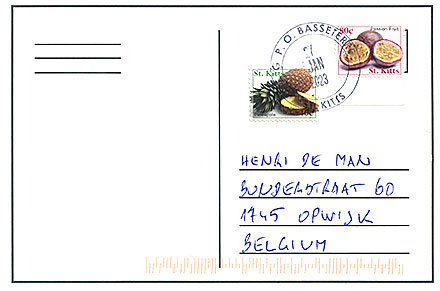 G. P. O. BASSETERRE
80c Passion Fruit
27
JAN
2023
St. Kitts
St. Kitts
KITTS
10c
HENRI DE MAN
1745 OPWIJK
BELGIUM